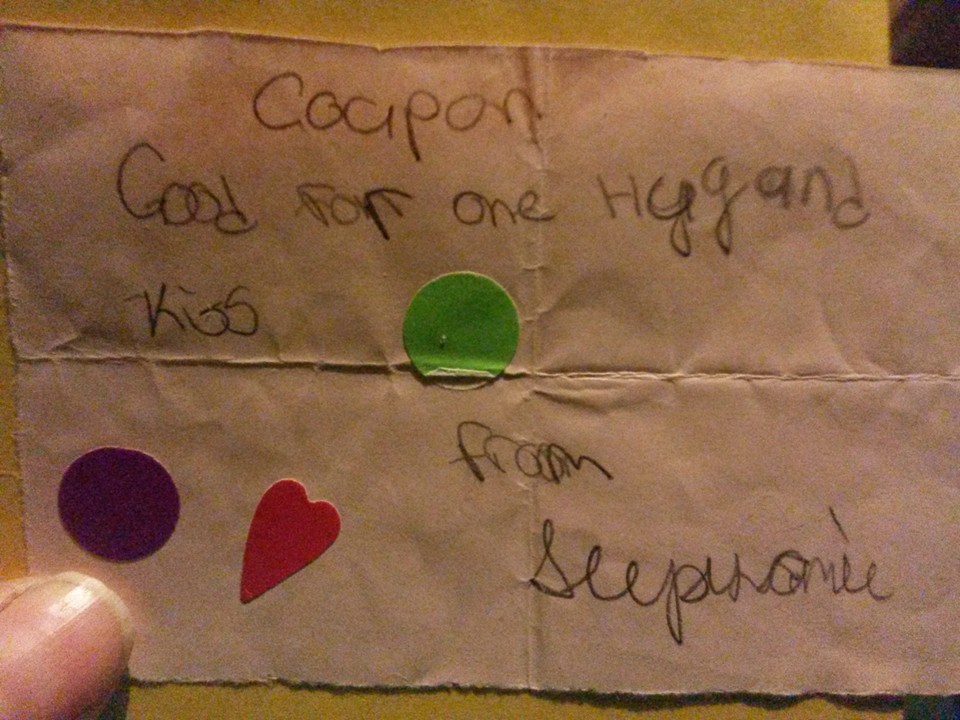 Coupon
Good for one Hug and
Kiss
from
Stephanie